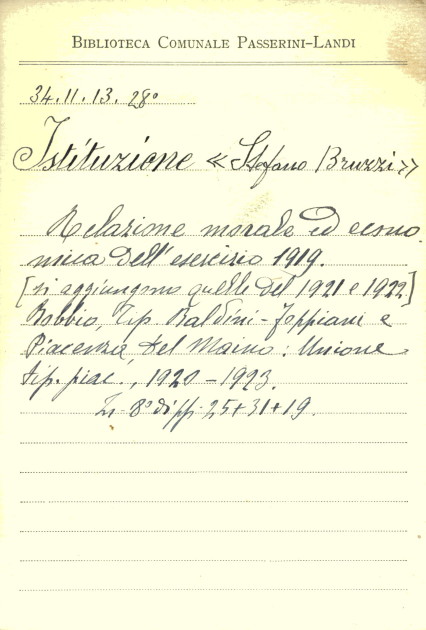 BIBLIOTECA COMUNALE PASSERINI-LANDI
34.11.13.28°
Istituzione «Stefano Bruzzi»
Relazione morale ed econo
mica dell'esercizio 1919.
[si aggiungono quelle del 1921 e 1922]
Bobbio, Tip. Baldini-Foppiani e
Piacenza, Del Maino: Unione
tip. piac., 1920-1923.
In 8° di pp. 25+31+19.